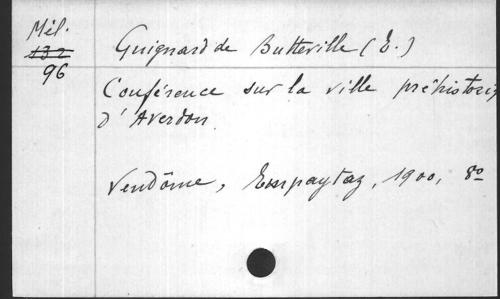 Mél.
132
96
Guignard de Butteville (E.)
Conférence sur la ville préhistoriq
d'Averdon
Vendôme, Empaytaz, 1900, 8o